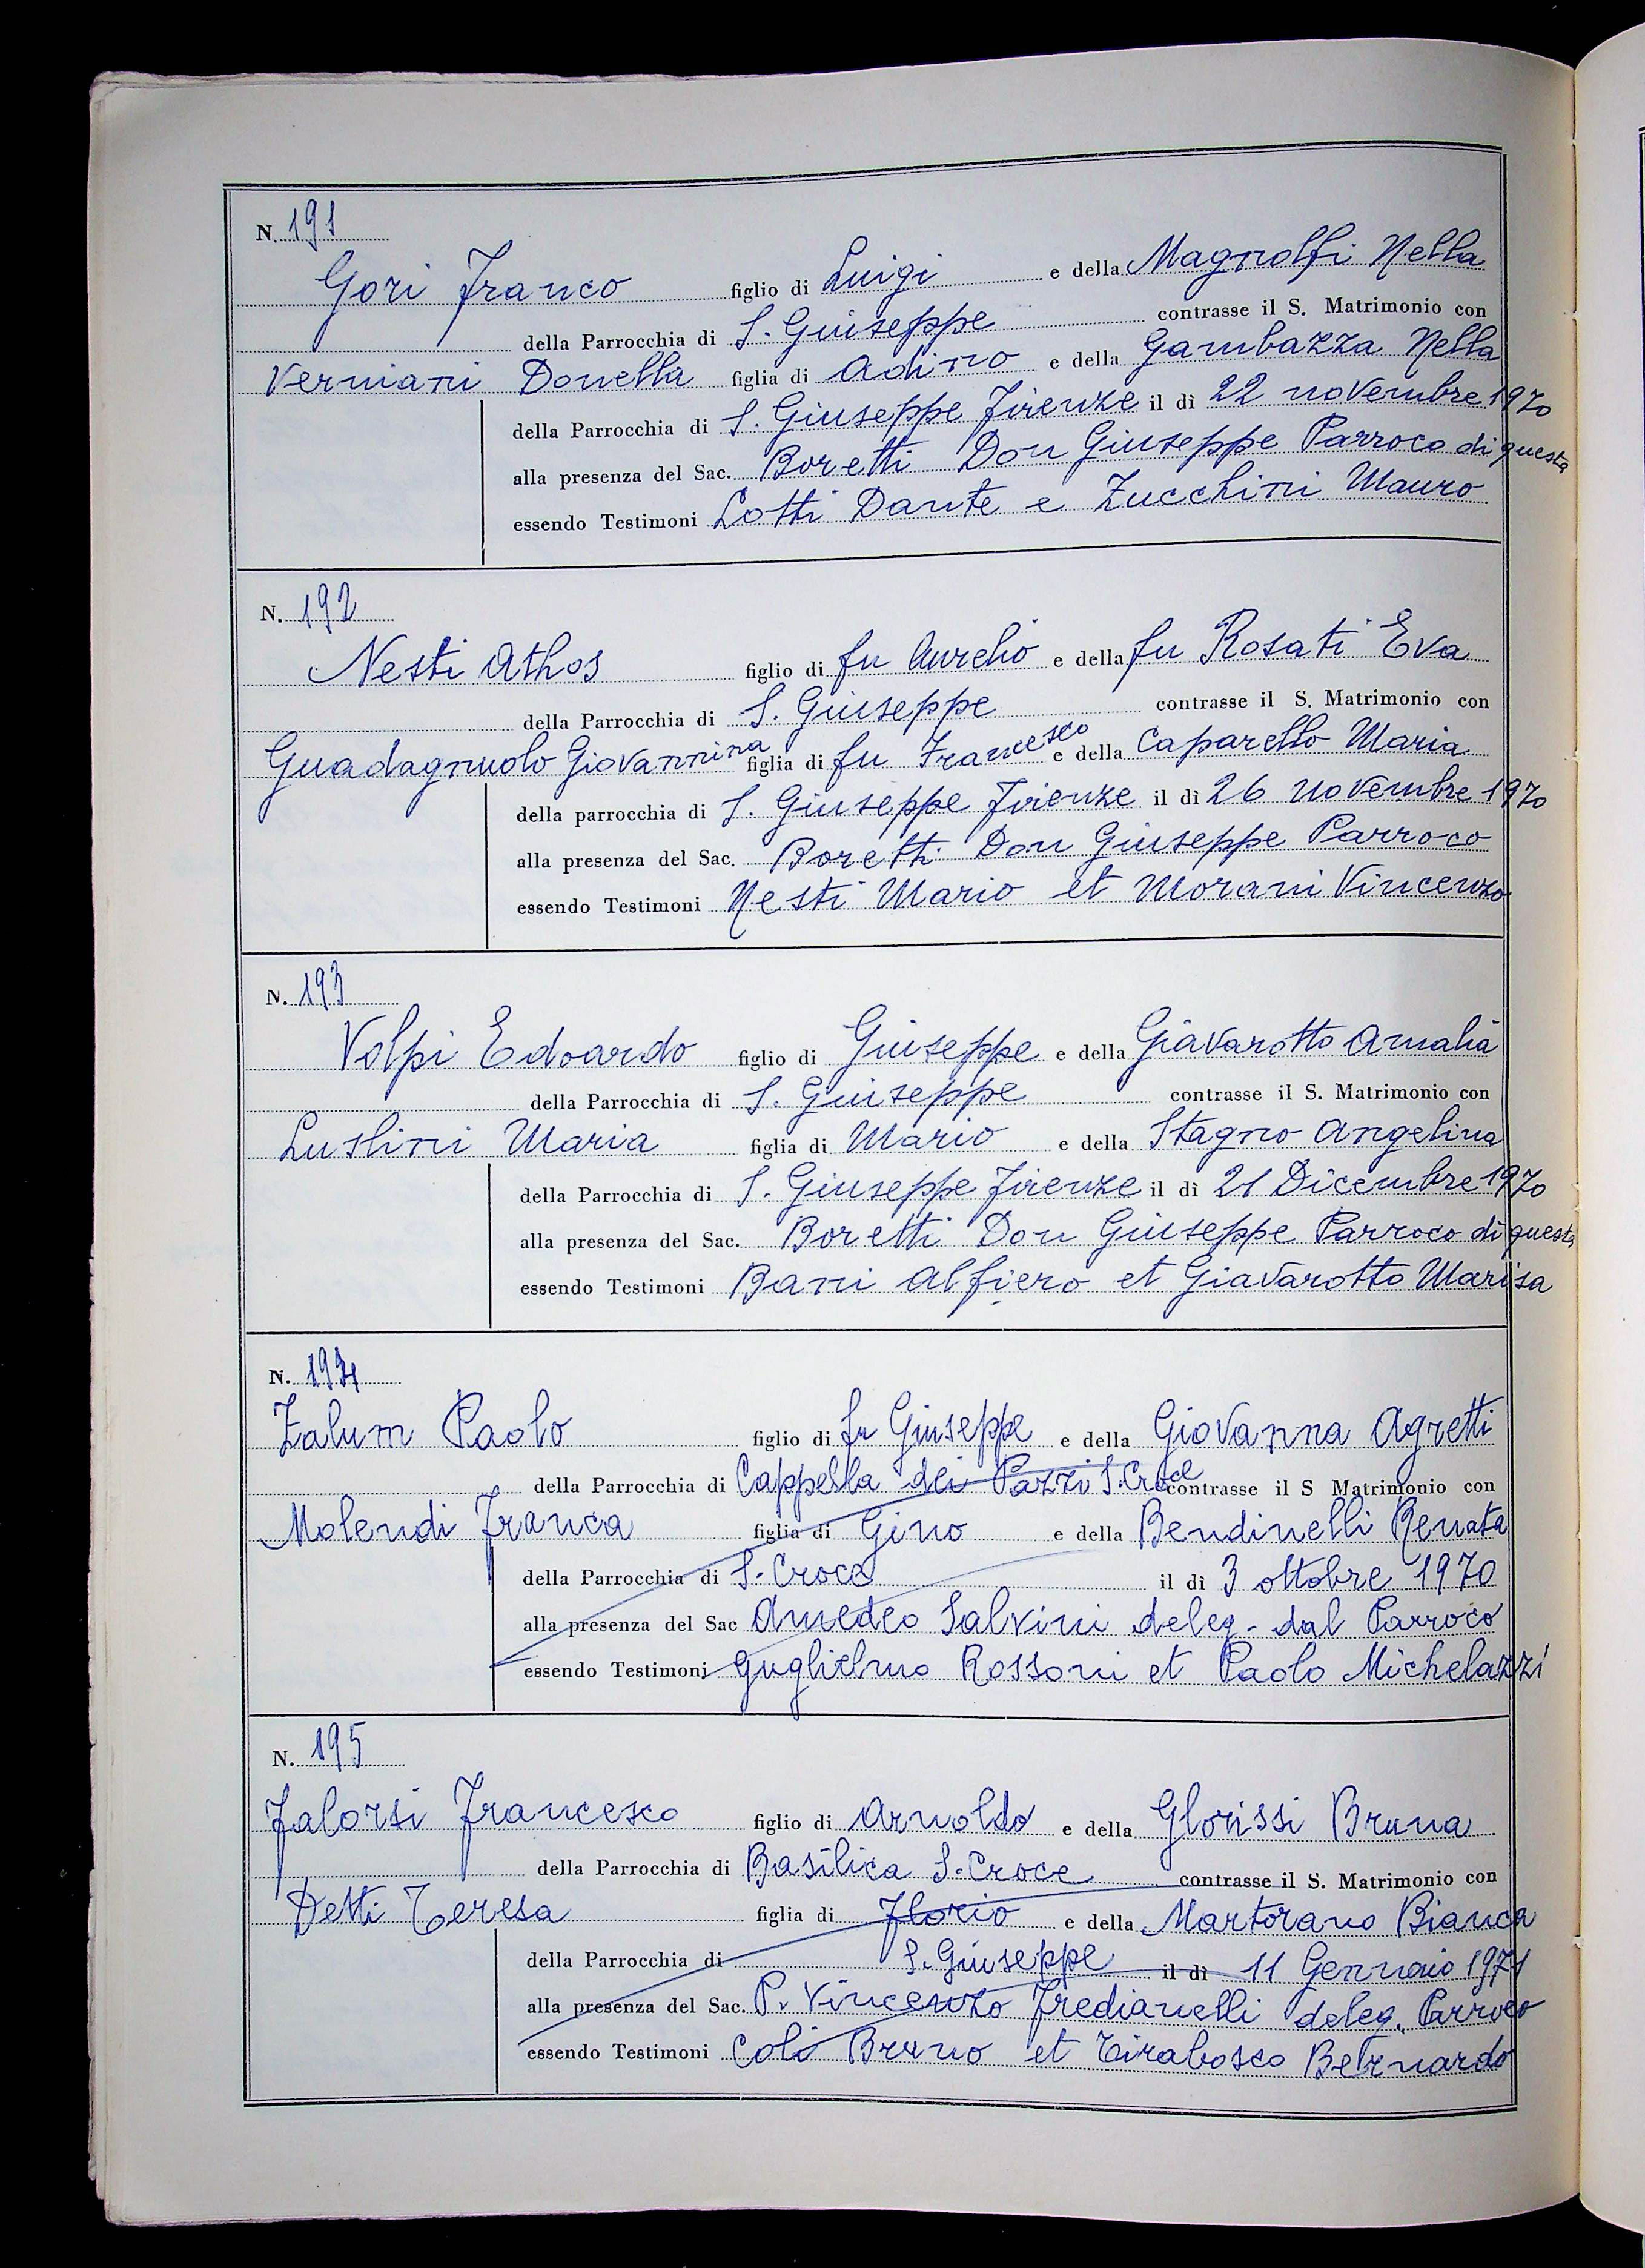 N. 191
Gori Franco figlio di Luigi e della Magnolfi Nella
della Parrocchia di S. Giuseppe contrasse il S. Matrimonio con
Verniani Donella figlia di Adino e della Gambazza Nella
della Parrocchia di S. Giuseppe Firenze il dì 22 novembre 1970
alla presenza del Sac. Boretti Don Giuseppe Parroco di questa
essendo Testimoni Lotti Dante e Zucchini Mauro
N. 192
Nesti Athos figlio di fu Aurelio e della fu Rosati Eva
della Parrocchia di S. Giuseppe contrasse il S. Matrimonio con
Guadagnuolo Giovannina figlia di fu Francesco e della Caparello Maria
della parrocchia di S. Giuseppe Firenze il dì 26 novembre 1970
alla presenza del Sac. Boretti Don Giuseppe Parroco
essendo Testimoni Nesti Mario et Morani Vincenzo
N. 193
Volpi Edoardo figlio di Giuseppe e della Giavarotto Amalia
della Parrocchia di S. Giuseppe contrasse il S. Matrimonio con
Luslini Maria figlia di Mario e della Stagno Angelina
della Parrocchia di S. Giuseppe Firenze il dì 21 Dicembre 1970
alla presenza del Sac. Boretti Don Giuseppe Parroco di questa
essendo Testimoni Bani Alfiero et Giavarotto Marisa
N. 194
Zalum Paolo figlio di fu Giuseppe e della Giovanna Agretti
della Parrocchia di Cappella dei Pazzi S. Croce contrasse il S Matrimonio con
Molendi Franca figlia di Gino e della Bendinelli Renata
della Parrocchia di S. Croce il dì 3 ottobre 1970
alla presenza del Sac Amedeo Salvini deleg. dal Parroco
essendo Testimoni Guglielmo Rossoni et Paolo Michelazzi
N. 195
Falorsi Francesco figlio di Arnoldo e della Glorissi Bruna
della Parrocchia di Basilica S. Croce contrasse il S. Matrimonio con
Detti Teresa figlia di Florio e della Martorano Bianca
della Parrocchia di S. Giuseppe il dì 11 Gennaio 1971
alla presenza del Sac. P. Vincenzo Fredianelli deleg. Parroco
essendo Testimoni Coli Bruno et Tirabosco Bernardo